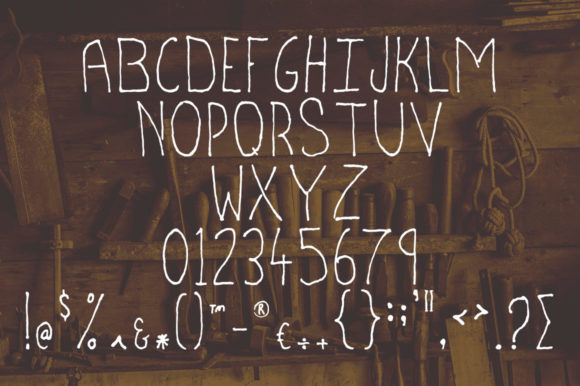 ABCDEFGHIJKLM
NOPQRSTUV
WXYZ
012345679
!@$%^&*()™-®€÷+{}:;'",<>.?Σ